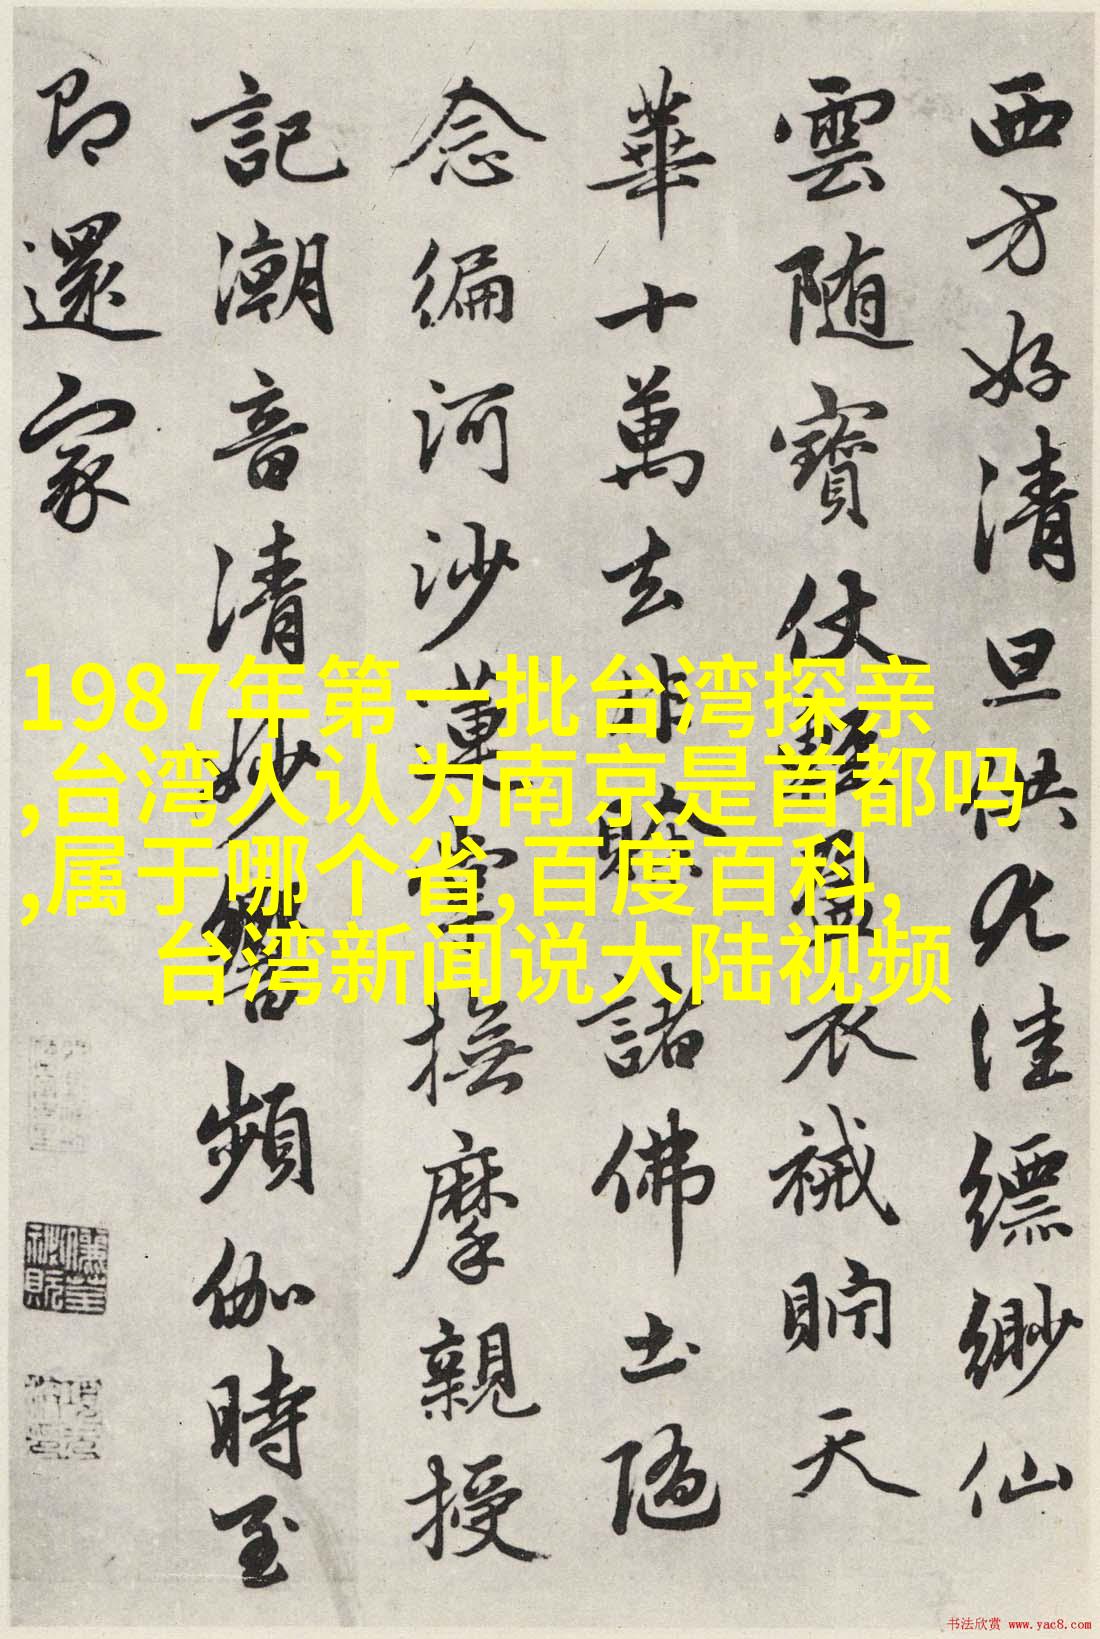 西方好清旦供九洼縹緲仙
雲随寶仗輕盈衣裓貯天
華十萬去非賒諸佛土隨
念編河沙蓮掌撫摩親授
記潮音清妙響頻伽時至
即還家
1987年第一批台湾探亲
,台湾人认为南京是首都吗
,属于哪个省,百度百科,
台湾新闻说大陆视频
书法欣赏 www.yac8.com